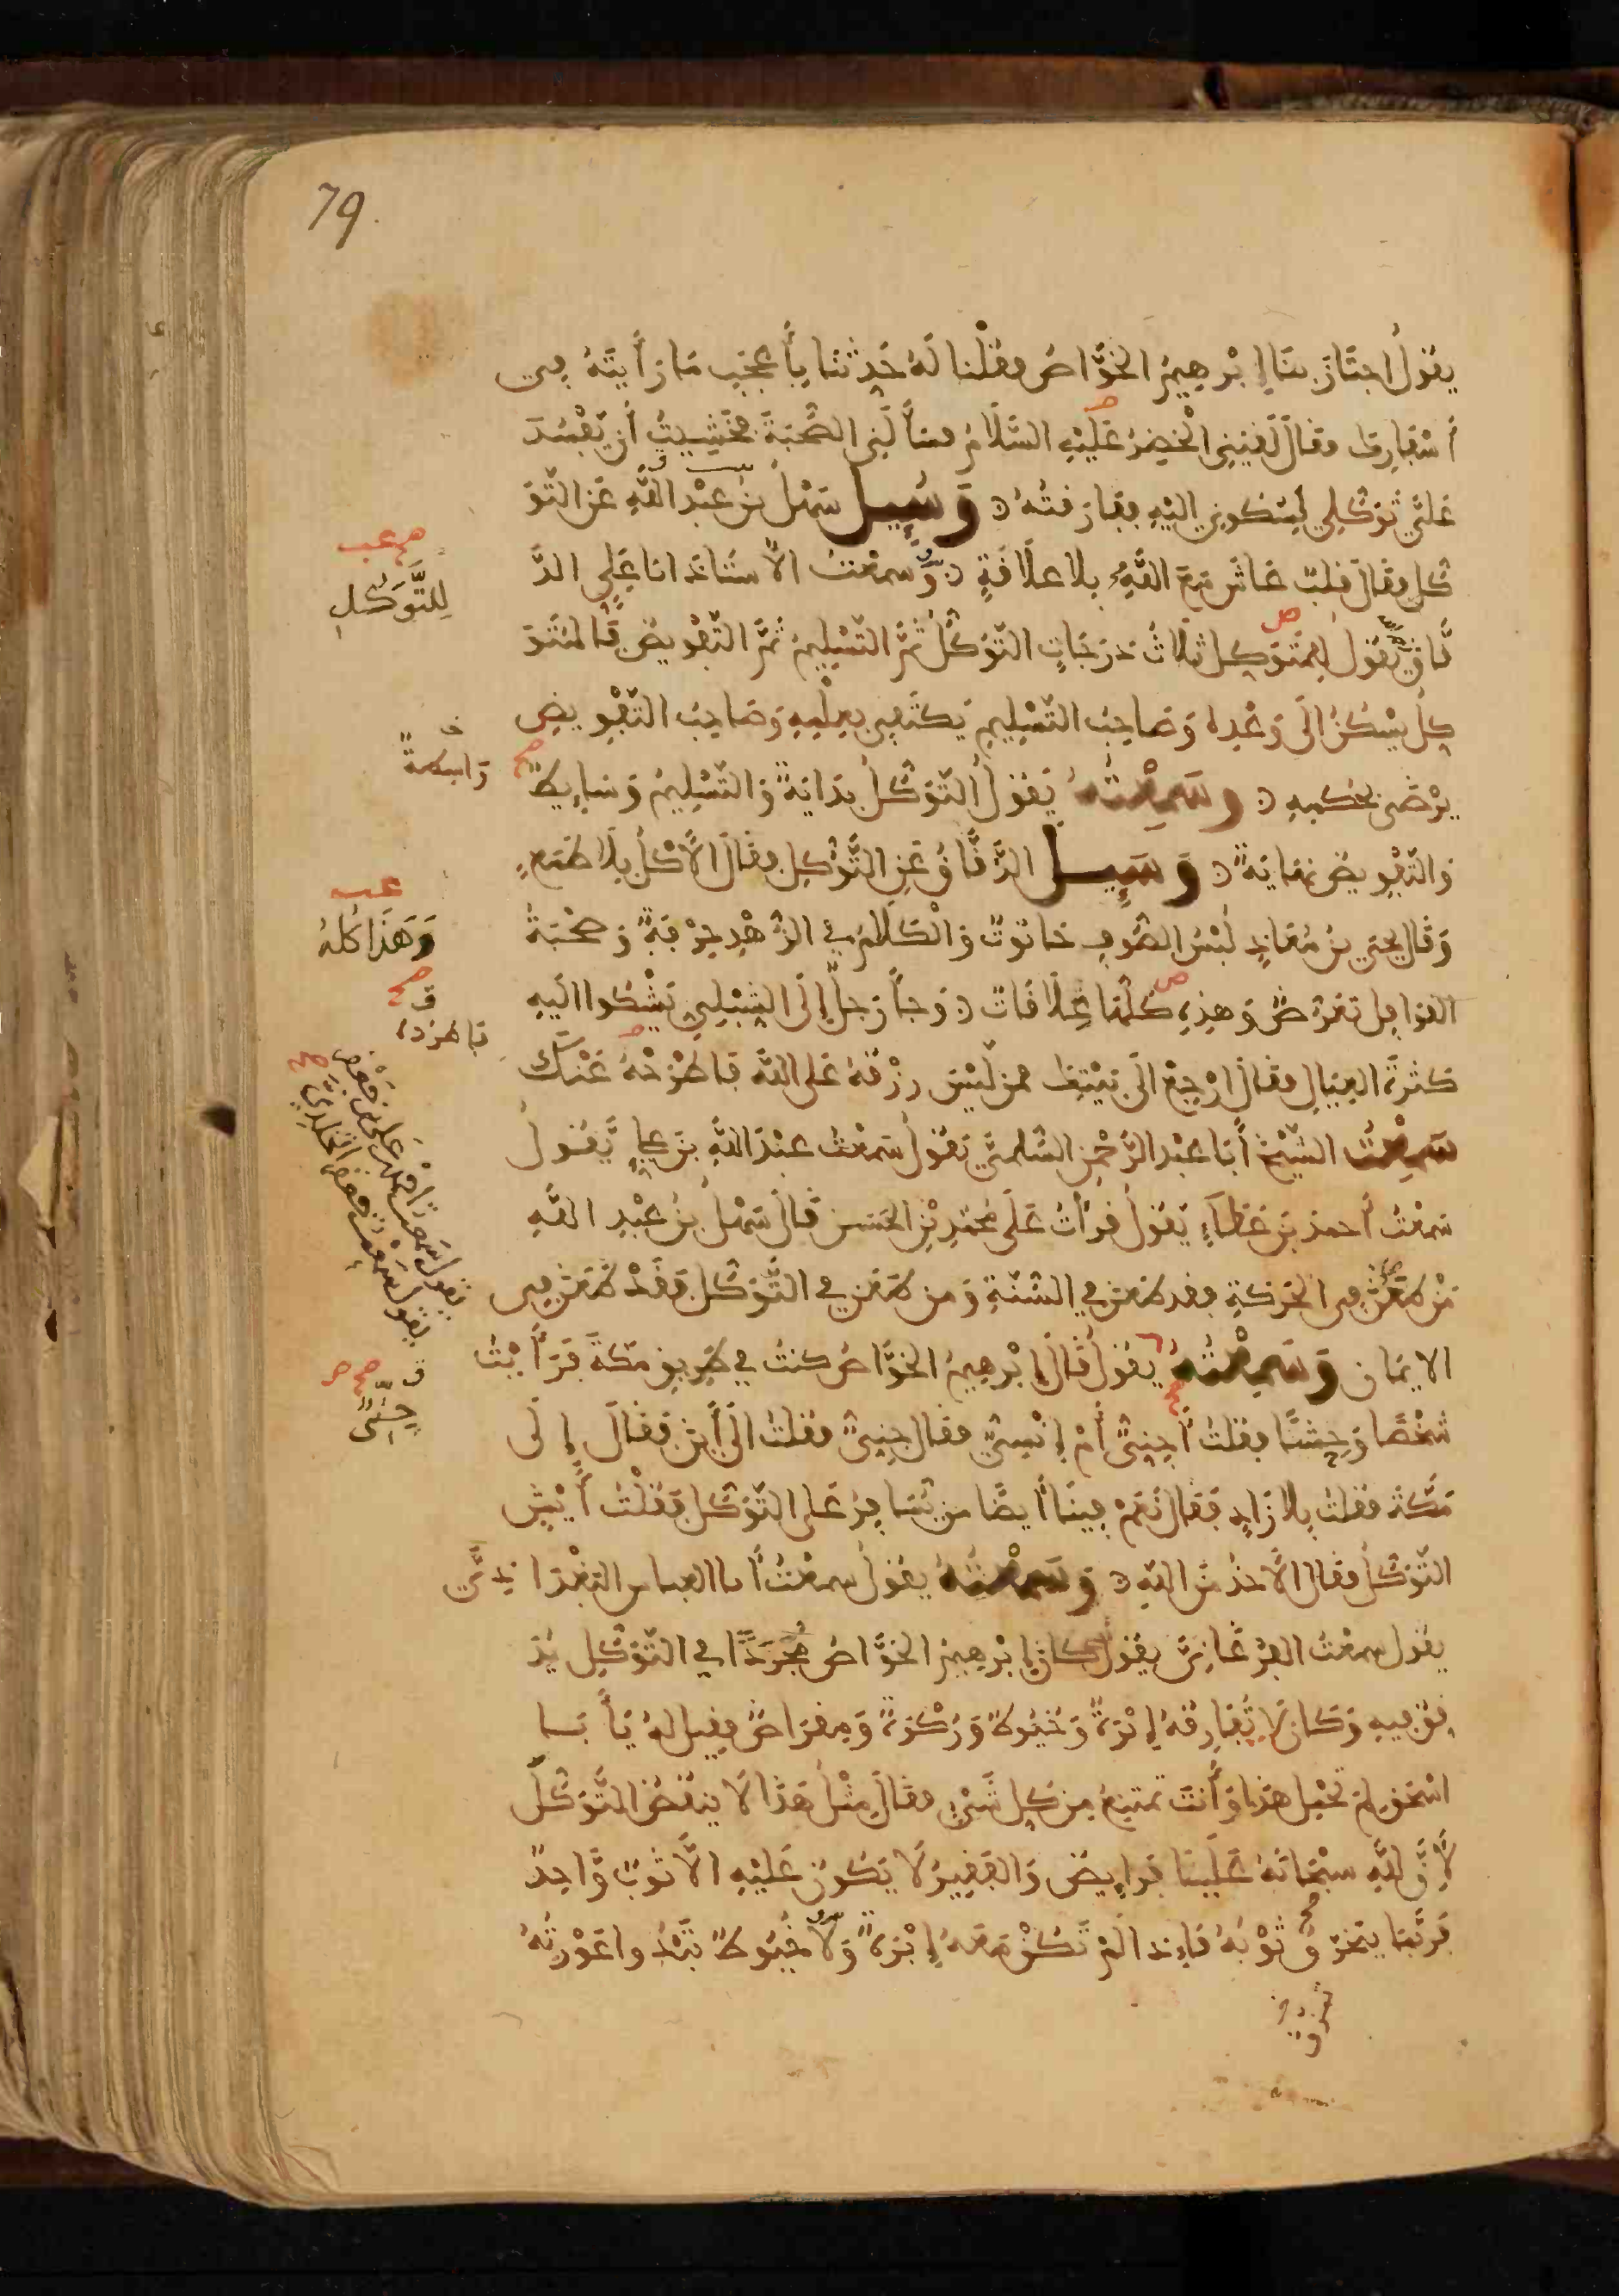 79.
يقول اجتاز بنا إبرهيم الخوّاص فقلنا له حدثنا بأعجب ما رأيته في
أسفارك فقال لقيني الخضر عليه السلام فسألني الصحبة فخشيت أن يفسد
عليّ توكلي لسكوني إليه ففارقته وسيل سهل بن عبد الله عن التو
كل فقال قلب عاش مع الله بلا علاقة وسمعت الأستاذ أبا علي الد
قاق يقول للمتوكل ثلاث درجات التوكل ثم التسليم ثم التفويض فالمتو
كل يسكن إلى وعده وصاحب التسليم يكتفي بعلمه وصاحب التفويض
يرضى بحكمه وسمعته يقول التوكل بداية والتسليم وسايط
والتفويض نهاية وسيل الدقاق عن التوكل فقال الأكل بلا طمع
وقال يحيى بن معاذ لبس الصوف حانوت والكلام في الزهد حرفة وصحبة
القوافل تعرّض وهذه كلها علاقات وجاء رجل إلى الشبلي يشكوا إليه
كثرة العيال فقال ارجع إلى بيتك فمن ليس رزقه على الله فاطرحه عنك
سمعت الشيخ أبا عبد الرحمن السلمي يقول سمعت عبد الله بن علي يقول
سمعت أحمد بن عطاء يقول قرأت على محمد بن الحسن قال سهل بن عبد الله
من طعن في الحركة فقد طعن في السنة ومن طعن في التوكل فقد طعن في
الايمان وسمعته يقول قال إبرهيم الخوّاص كنت في طريق مكة فرأيت
شخصا وحشيا فقلت أجنيّ أم إنسيّ فقال جنيّ فقلت إلى أين فقال إلى
مكة فقلت بلا زاد فقال نعم فينا أيضا من يسافر على التوكل فقلت أيش
التوكل فقال الأخذ من الله وسمعته يقول سمعت أبا العباس البغدادي
يقول سمعت الفرغاني يقول كان إبرهيم الخوّاص مجردا في التوكل يد
قق فيه وكان لا يفارقه إبرة وخيوط وركوة ومقراض فقيل له يأبا
اسحق لم تحمل هذا وأنت تمتنع من كل شيء فقال مثل هذا لا ينقض التوكل
لأن لله سبحانه علينا فرايض والفقير لا يكون عليه الا ثوب واحد
فربما يتخرق ثوبه فإذا لم تكن معه إبرة ولا خيوط تبدوا عورته
للتوكل
واسطة
وهذا كله
فاطرده
يقول سمعت أحمد بن علي بن جعفر
يقول سمعت جعفر الخلدي
جنيّ